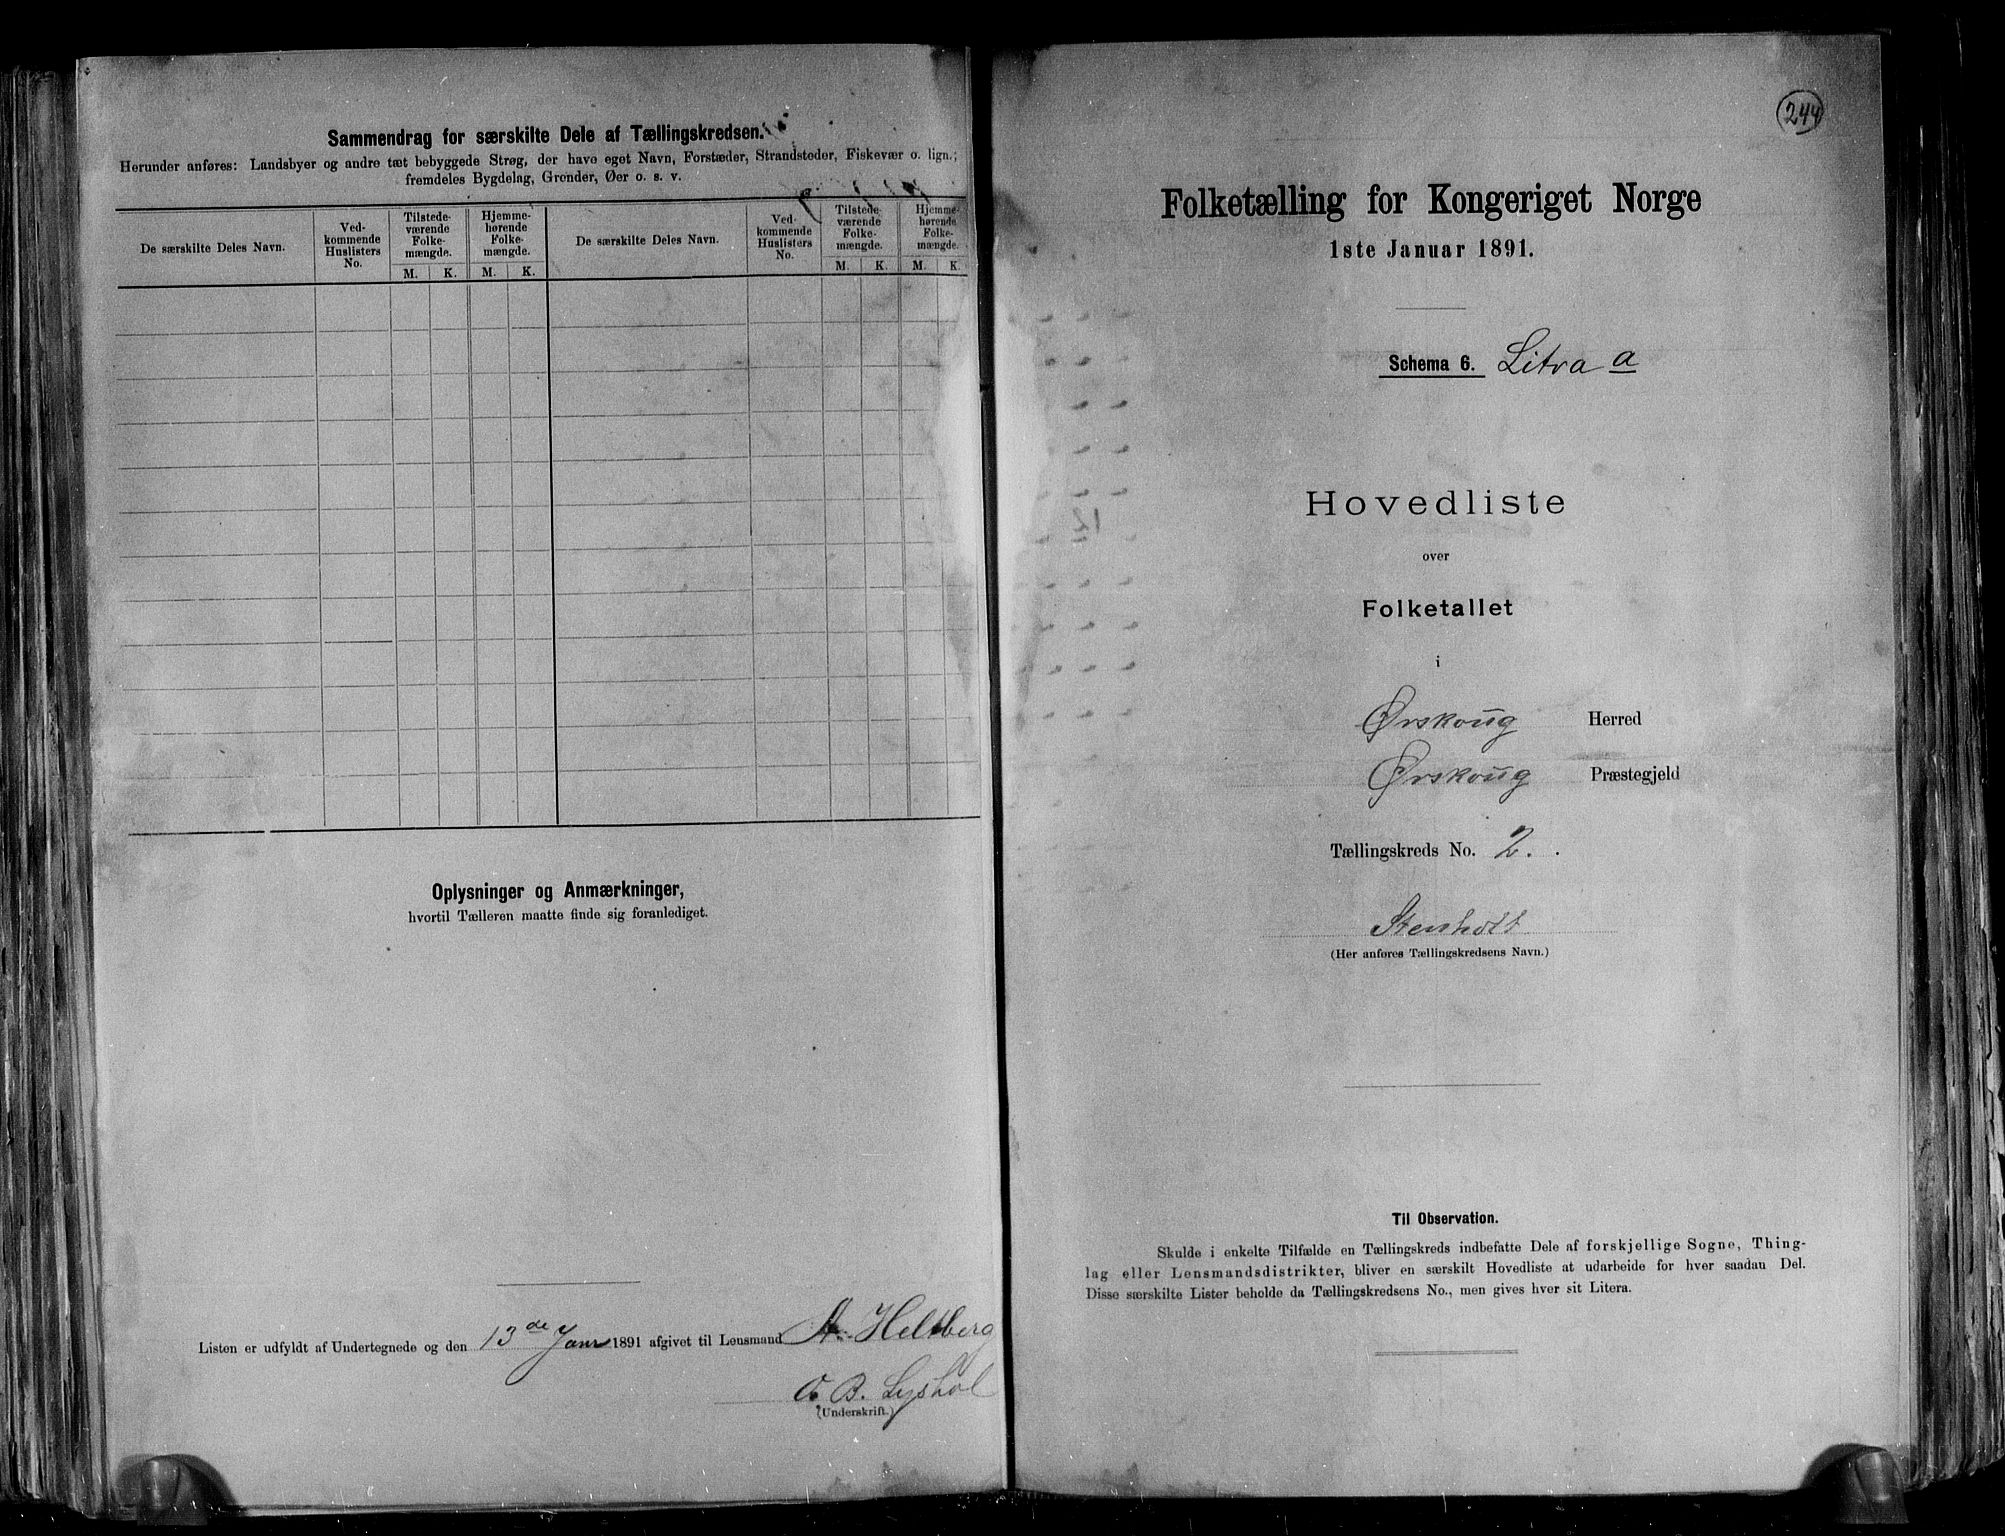 Sammendrag for særskilte Dele af Tællingskredsen.
Herunder anføres: Landsbyer og andre tæt bebyggede Strøg, der have eget Navn, Forstæder, Strandsteder, Fiskevær o. lign.;
fremdeles Bygdelag, Grender, Øer o. s. v.
De særskilte Deles Navn.
Ved-
kommende
Huslisters
No.
Tilstede-
værende
Folke-
mængde.
M. K.
Hjemme-
hørende
Folke-
mængde.
M. K.
De særskilte Deles Navn.
Ved-
kommende
Huslisters
No.
Tilstede-
værende
Folke-
mængde.
M. K.
Hjemme-
hørende
Folke-
mængde.
M. K.
Oplysninger og Anmærkninger,
hvortil Tælleren maatte finde sig foranlediget.
Listen er udfyldt af Undertegnede og den 13de Janr 1891 afgivet til Lensmand A. Heltberg
O. B. Lyshol
(Underskrift.)
244
Folketælling for Kongeriget Norge
1ste Januar 1891.
Schema 6. Litra a
Hovedliste
over
Folketallet
i
Ørskoug Herred
Ørskoug Præstegjeld
Tællingskreds No. 2.
Stenholt
(Her anføres Tællingskredsens Navn.)
Til Observation.
Skulde i enkelte Tilfælde en Tællingskreds indbefatte Dele af forskjellige Sogne, Thing-
lag eller Lensmandsdistrikter, bliver en særskilt Hovedliste at udarbeide for hver saadan Del.
Disse særskilte Lister beholde da Tællingskredsens No., men gives hver sit Litera.